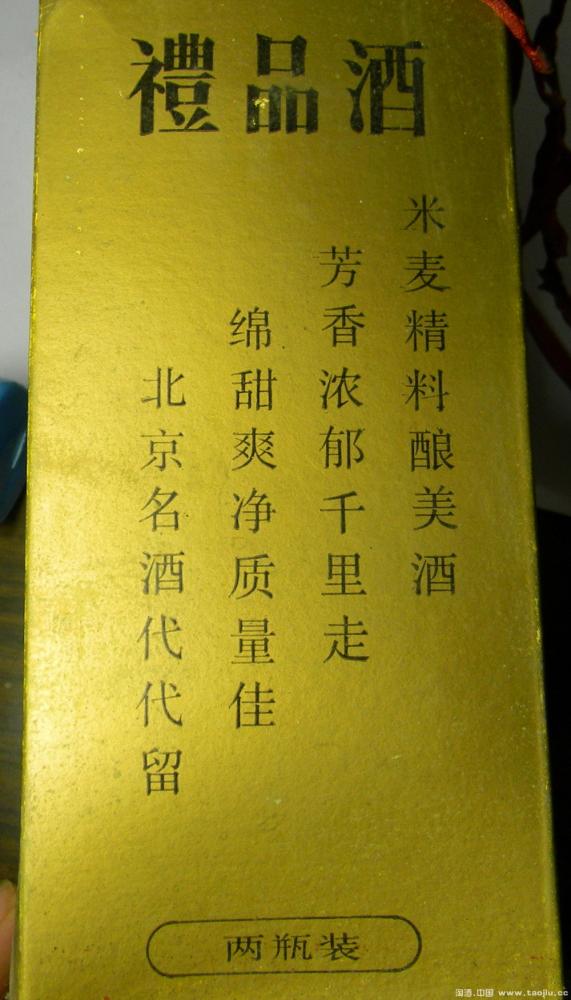 禮品酒
米麦精料酿美酒
芳香浓郁千里走
绵甜爽净质量佳
北京名酒代代留
两瓶装
淘酒.中国 www.taojiu.cc